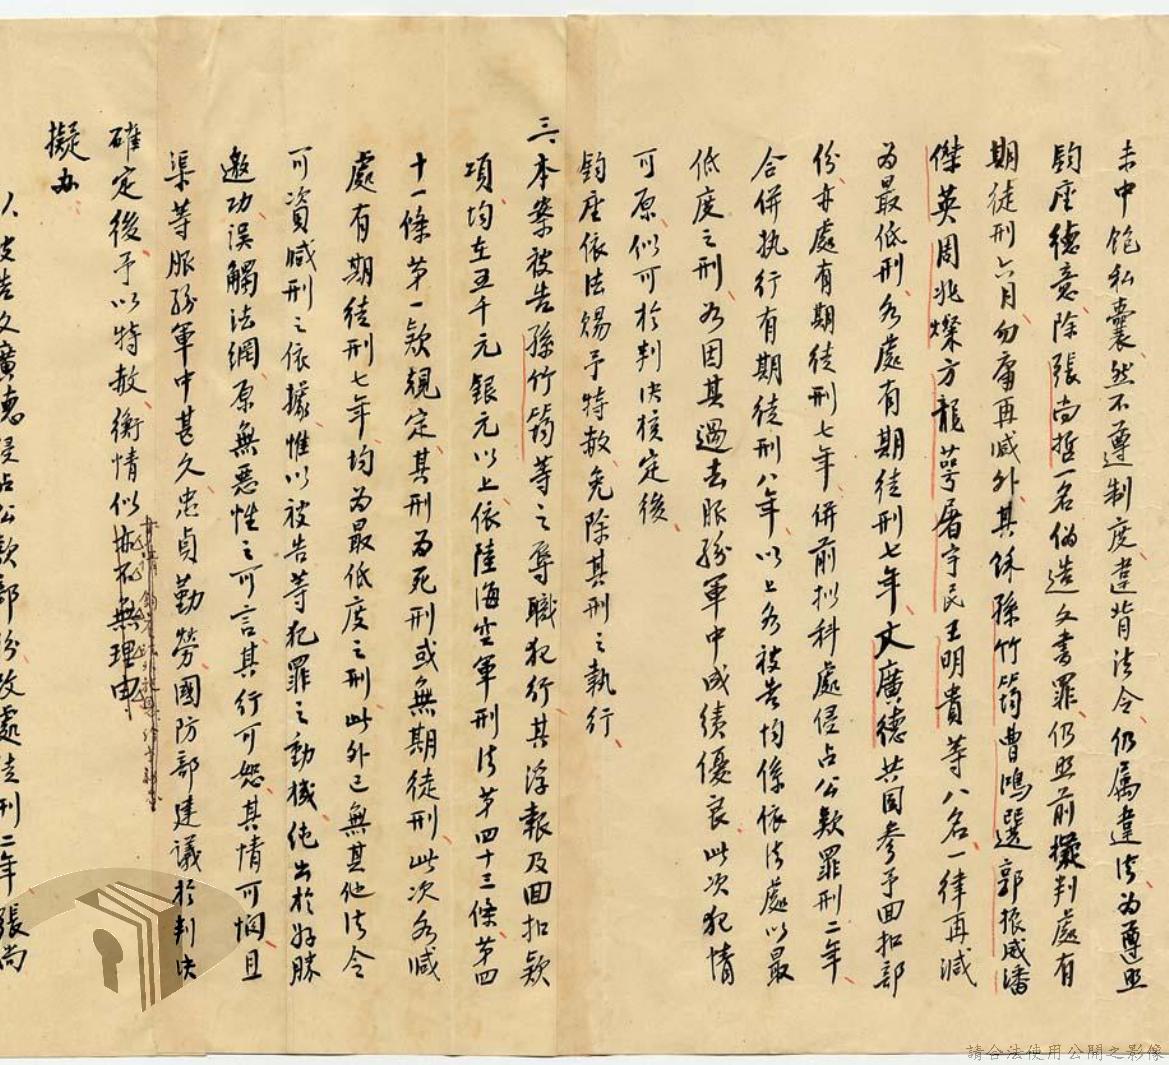 未中飽私囊、然不遵制度違背法令、仍屬違法、為遵照
鈞座德意、除張尚哲一名偽造文書罪、仍照前擬判處有
期徒刑六月、勿庸再減外、其餘孫竹筠曹鴻選郭振威潘
傑英周兆燦方龍萼屠宇民王明貴等八名、一律再減
為最低刑、各處有期徒刑七年、文廣德共同參予回扣部
份、亦處有期徒刑七年、併前擬科處侵占公款罪刑二年、
合併執行有期徒刑八年、以上各被告均係依法處以最
低度之刑、為因其過去服務軍中成績優良、此次犯情
可原、似可於判決核定後、
鈞座依法賜予特赦免除其刑之執行、
三、本案被告孫竹筠等之辱職犯行、其浮報及回扣款
項、均在五千元銀元以上、依陸海空軍刑法第四十三條、第四
十一條第一款規定、其刑為死刑或無期徒刑、此次各減
處有期徒刑七年、均為最低度之刑、此外已無其他法令
可資減刑之依據、惟以被告等犯罪之動機、純出於好勝
邀功、誤觸法網、原無惡性之可言、其行可恕、其情可憫、且
渠等服務軍中甚久、忠貞勤勞、國防部建議於判決
確定後、予以特赦、衡情似無理由、
擬办
八、被告文廣德侵占公款部份改處徒刑二年、張尚
請合法使用公開之影像